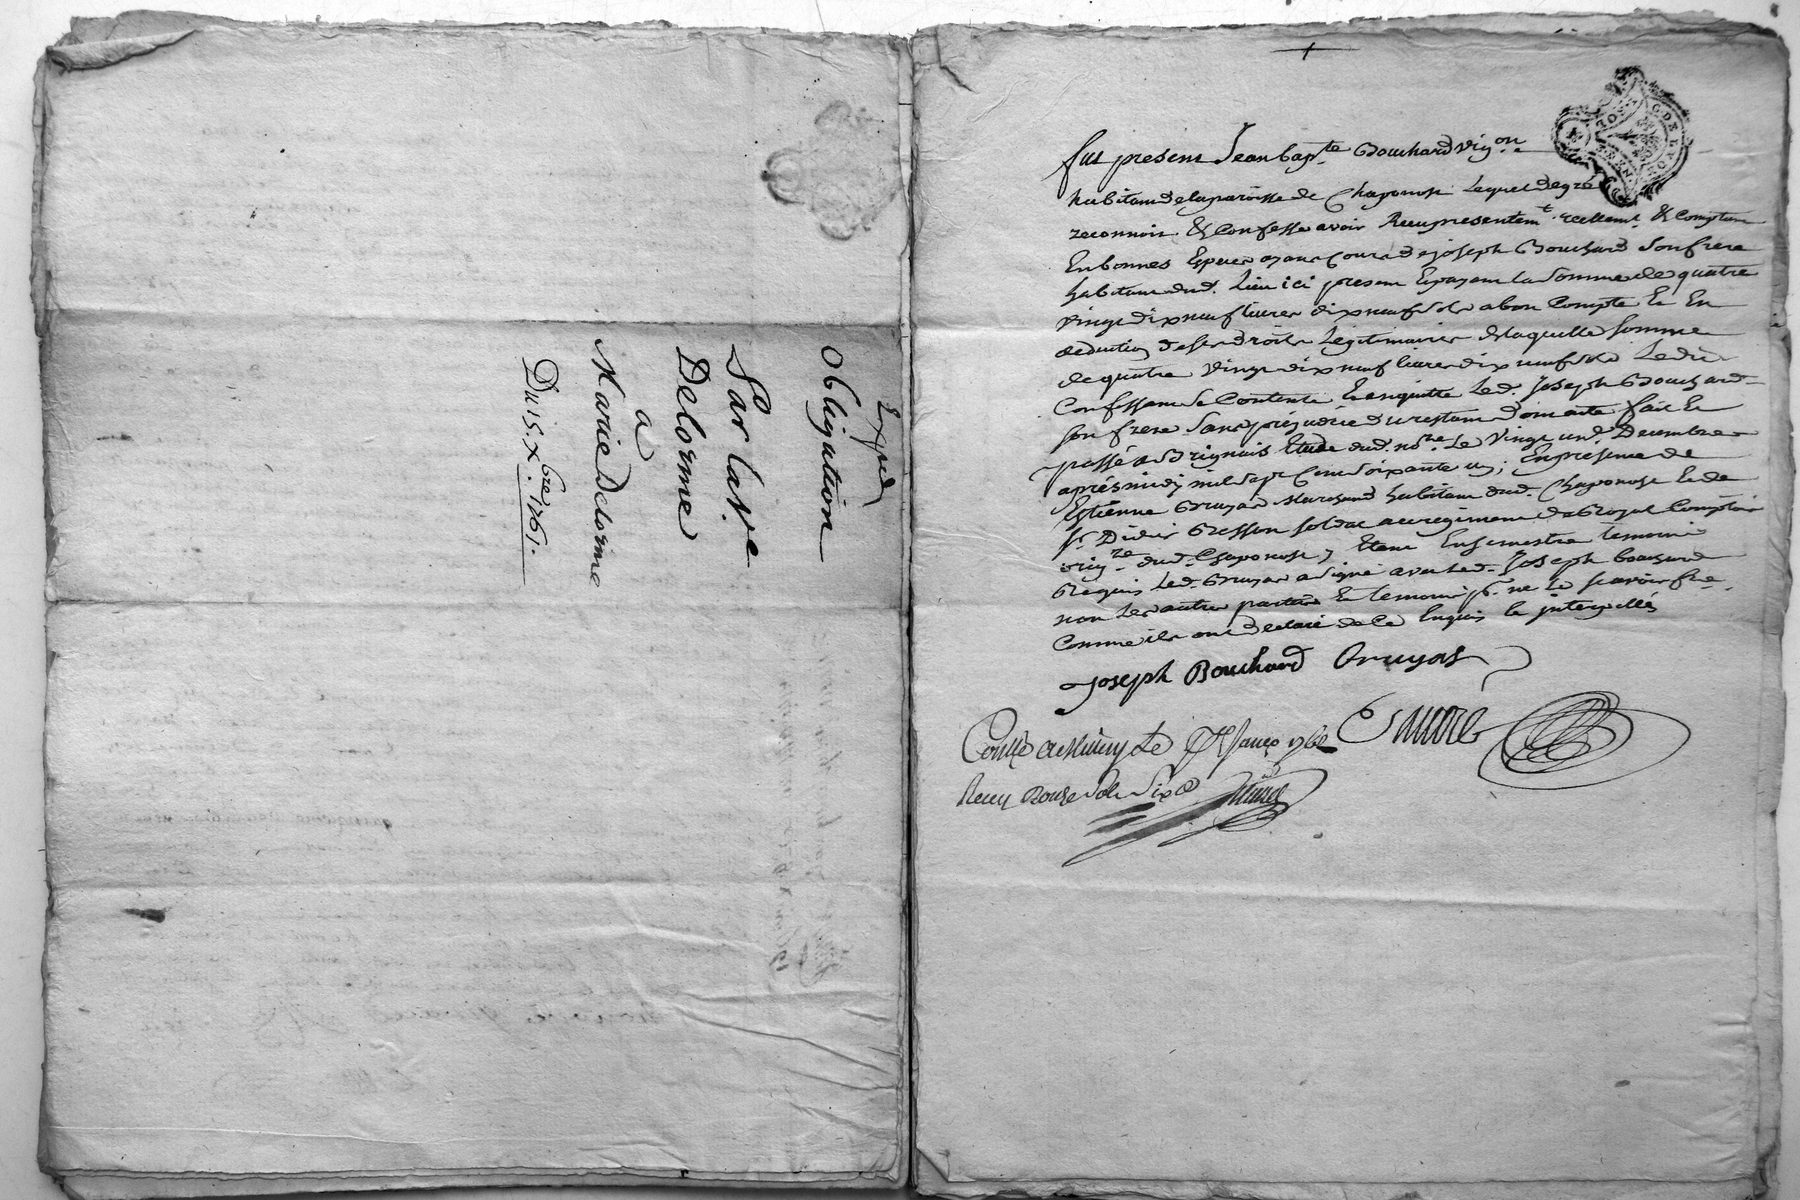 Expéd
Obligation
Par la v.e
Delorme
a
Marie Delorme
Du 5. Xbre 1761.
fut present Jean bap.te Bouchard vig.on
habitant de la paroisse de Chaponost lequel de gré
reconnoit & Confesse avoir Reçu presentem.t reellem.t & Comptant
En bonnes Especes ayant Cours de joseph Bouchard son frere
habitant dud. lieu ici present Et payant la somme de quatre
vingt dix neuf livres dix neuf sols a bon Compte Et En
deduction de ses droits Legitimaires de laquelle somme
de quatre vingt dix neuf livres dix neuf sols Ledit
Confessant se Contente Et en quitte Led. Joseph Bouchard
son frere sans préjudice du restant dont acte fait Et
passé a Brignais Etude dud. no.re Le vingt un.e Decembre
après midy mil sept Cent soixante un; En presence de
Estienne Bruyas Marchand habitant dud. Chaponost Et de
s.r Didier Besson soldat au regiment de Royal Comptois
orig.re dud. Chaponost, Etant En semestre temoins
Requis Led. Bruyas a signé avec led. Joseph bouchard
non les autres parties Et temoins p.r ne le sçavoir fre.
Comme ils ont declaré de ce Enquis & interpellés
Joseph Bouchard Bruyas
Conllé a le Janv 1762
Recu Douze sols six d